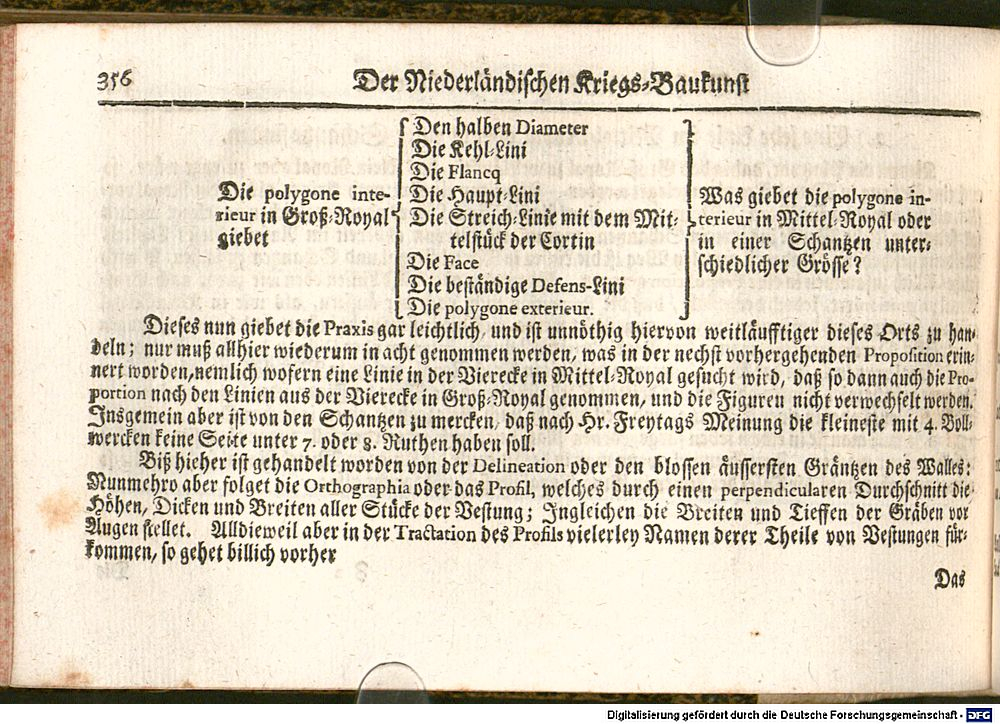 356
Der Niederländischen Kriegs-Baukunst
Die polygone inte-
rieur in Groß-Royal
giebet
Den halben Diameter
Die Kehl-Lini
Die Flancq
Die Haupt-Lini
Die Streich-Linie mit dem Mit-
telstück der Cortin
Die Face
Die beständige Defens-Lini
Die polygone exterieur.
Was giebet die polygone in-
terieur in Mittel-Royal oder
in einer Schantzen unter-
schiedlicher Grösse?
Dieses nun giebet die Praxis gar leichtlich, und ist unnöthig hiervon weitläufftiger dieses Orts zu han-
deln; nur muß allhier wiederum in acht genommen werden, was in der nechst vorhergehenden Proposition erin-
nert worden, nemlich wofern eine Linie in der Vierecke in Mittel-Royal gesucht wird, daß so dann auch die Pro-
portion nach den Linien aus der Vierecke in Groß-Royal genommen, und die Figuren nicht verwechselt werden.
Insgemein aber ist von den Schantzen zu mercken, daß nach Hr. Freytags Meinung die kleineste mit 4. Boll-
wercken keine Seite unter 7. oder 8. Ruthen haben soll.
Biß hieher ist gehandelt worden von der Delineation oder den blossen äussersten Gräntzen des Walles:
Nunmehro aber folget die Orthographia oder das Profil, welches durch einen perpendicularen Durchschnitt die
Höhen, Dicken und Breiten aller Stücke der Vestung; Ingleichen die Breiten und Tieffen der Gräben vor
Augen stellet. Alldieweil aber in der Tractation des Profils vielerley Namen derer Theile von Vestungen für-
kommen, so gehet billich vorher
Das
Digitalisierung gefördert durch die Deutsche Forschungsgemeinschaft - DFG